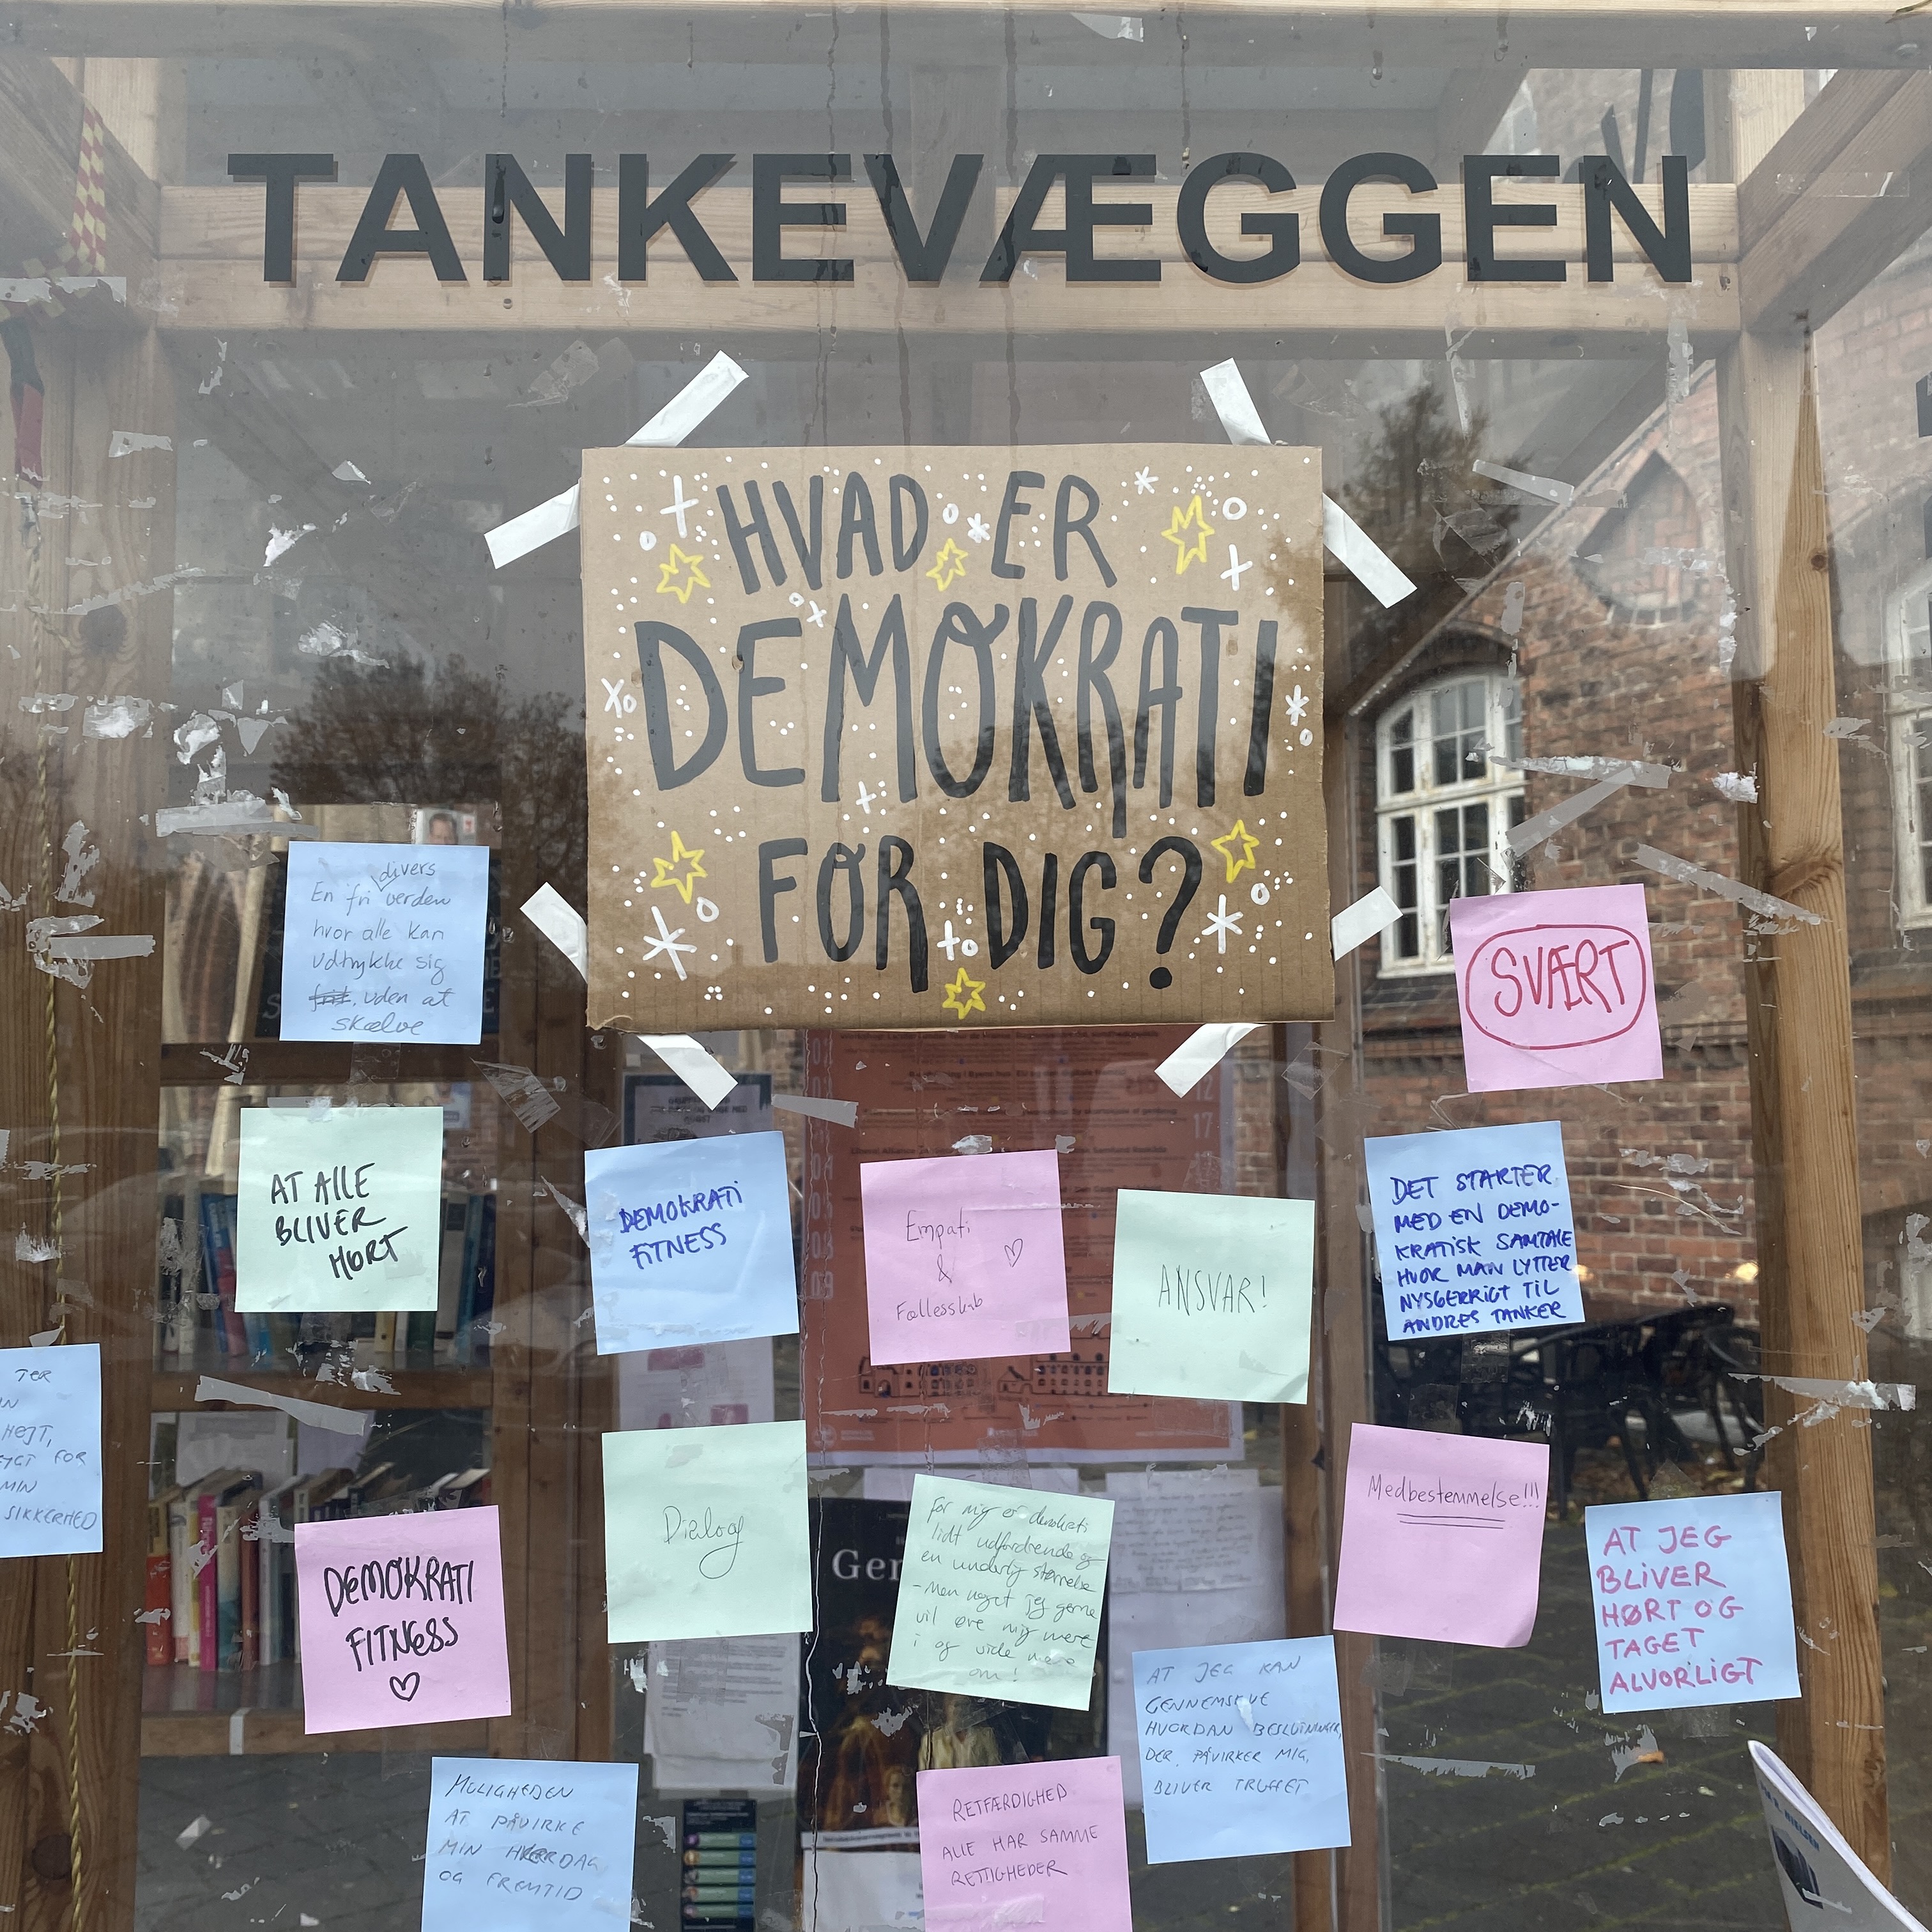 TANKEVÆGGEN
HVAD ER
DEMOKRATI
FOR DIG?
divers
En fri verden
hvor alle kan
udtrykke sig
frit. uden at
skælve
SVÆRT
AT ALLE
BLIVER
HØRT
DEMOKRATI
FITNESS
Empati
&
Fællesskab
ANSVAR!
DET STARTER
MED EN DEMO-
KRATISK SAMTALE
HVOR MAN LYTTER
NYSGERRIGT TIL
ANDRES TANKER
TER
HØJT,
FOR
MIN
SIKKERHED
DEMOKRATI
FITNESS
Dialog
For mig er demokrati
lidt udfordrende og
en underlig størrelse
-Men noget jeg gerne
vil øve mig mere
i og vide mere
om!
Medbestemmelse!!!
AT JEG
BLIVER
HØRT OG
TAGET
ALVORLIGT
AT JEG KAN
GENNEMSKUE
HVORDAN BESLUTNINGER,
DER PÅVIRKER MIG,
BLIVER TRUFFET
MULIGHEDEN
AT PÅVIRKE
MIN HVERDAG
OG FREMTID
RETFÆRDIGHED
ALLE HAR SAMME
RETTIGHEDER
Ger
12
17